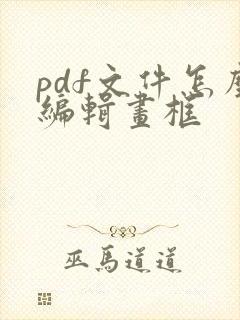 pdf文件怎麼
編輯畫框
巫馬道道